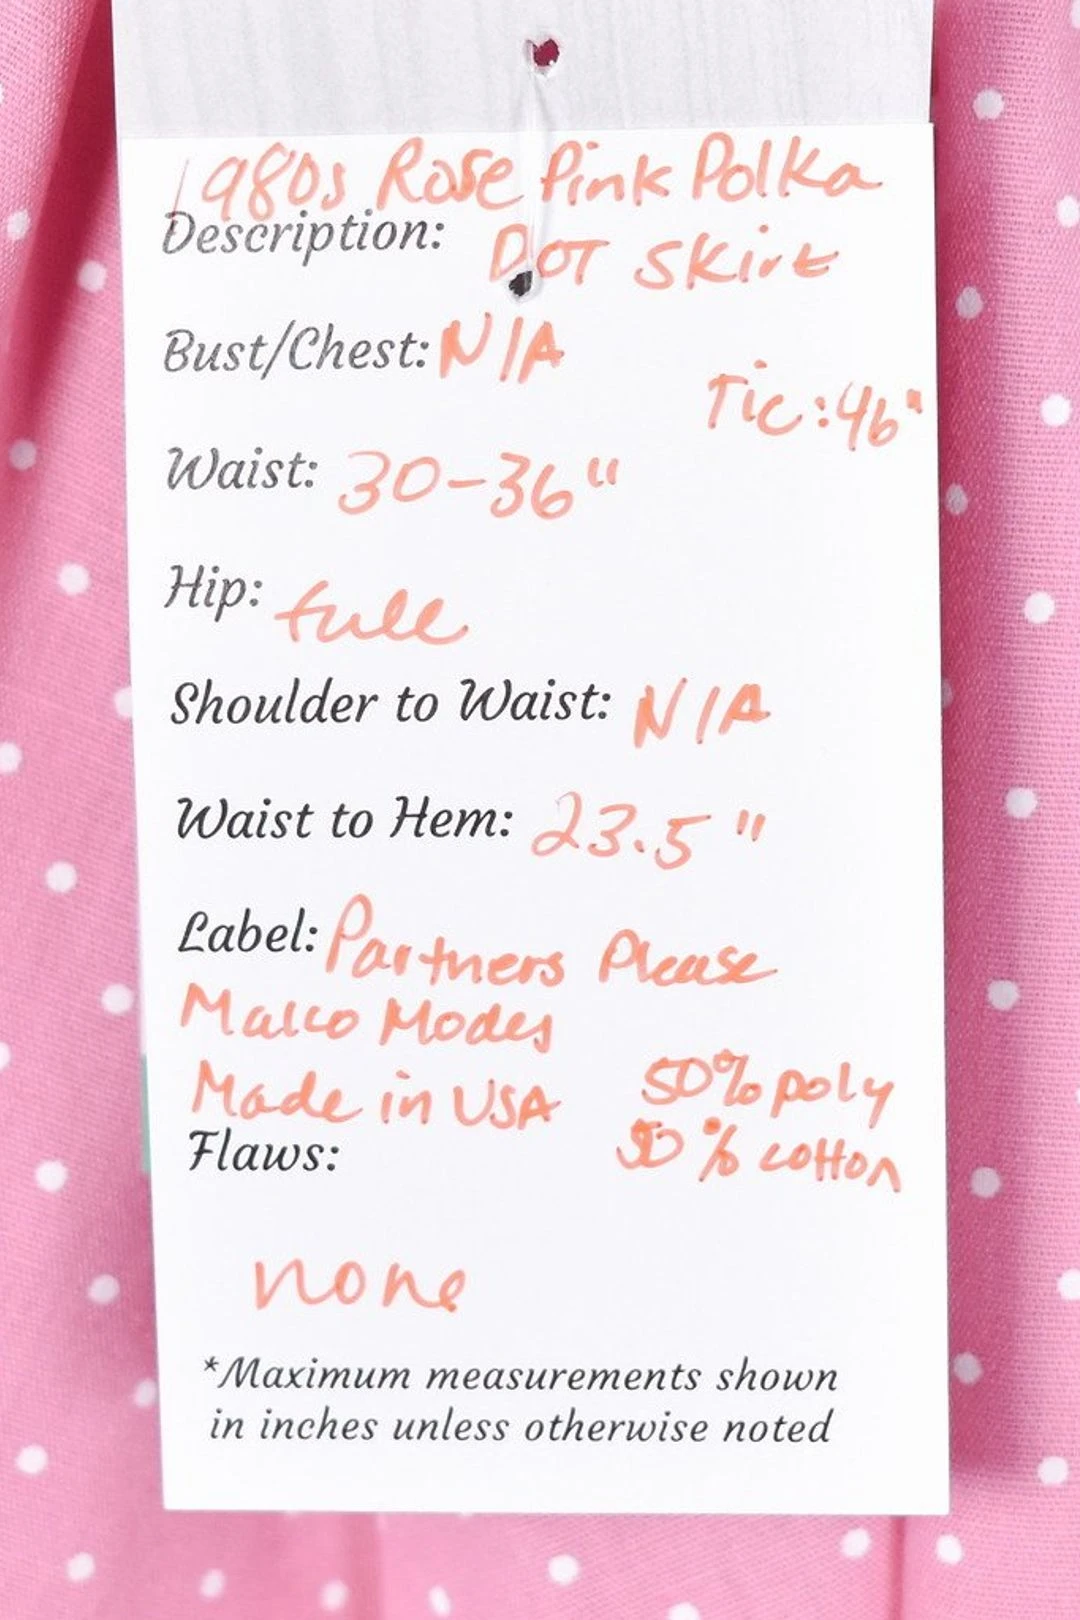 1980s Rose Pink Polka
Description: DOT Skirt
Bust/Chest: N/A
Tic: 46"
Waist: 30-36"
Hip: full
Shoulder to Waist: N/A
Waist to Hem: 23.5"
Label: Partners Please
Malco Modes
Made in USA 50% poly
Flaws: 50% cotton
none
*Maximum measurements shown
in inches unless otherwise noted